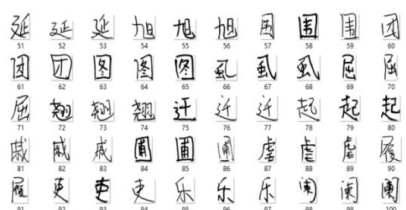 延 延 延 旭 旭 旭 围 围 围 团
51 52 53 54 55 56 57 58 59 60
团 团 图 图 图 虱 虱 虱 屈 屈
61 62 63 64 65 66 67 68 69 70
屈 翘 翘 翘 迁 迁 迁 起 起 起
71 72 73 74 75 76 77 78 79 80
戚 戚 戚 圃 圃 圃 虐 虐 虐 履
81 82 83 84 85 86 87 88 89 90
履 吏 吏 吏 乐 乐 乐 阑 阑 阑